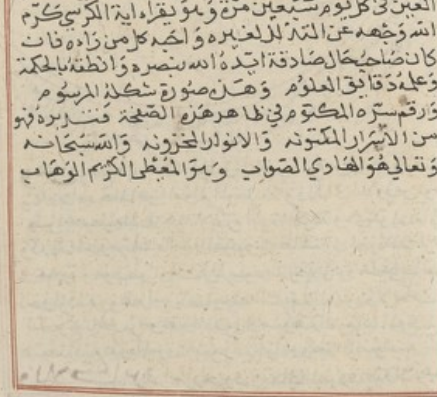 العين في كل يوم سبعين مرة وهو يقرا اية الكرسي كرّم
الله وجهه عن التذلل لغيره واحبه كل من راه فان
كان صاحب حال صادقة ايّده الله بنصره وانطقه بالحكمة
وعلمه دقايق العلوم وهذه صورة شكله المرسوم
ورقم سرّه المكتوم في ظاهر هذه الصفحة فتدبره فهو
من الاسرار المكنونه والانوار المخزونه والله سبحانه
وتعالى هو الهادي للصواب وهو المعطى الكريم الوهاب